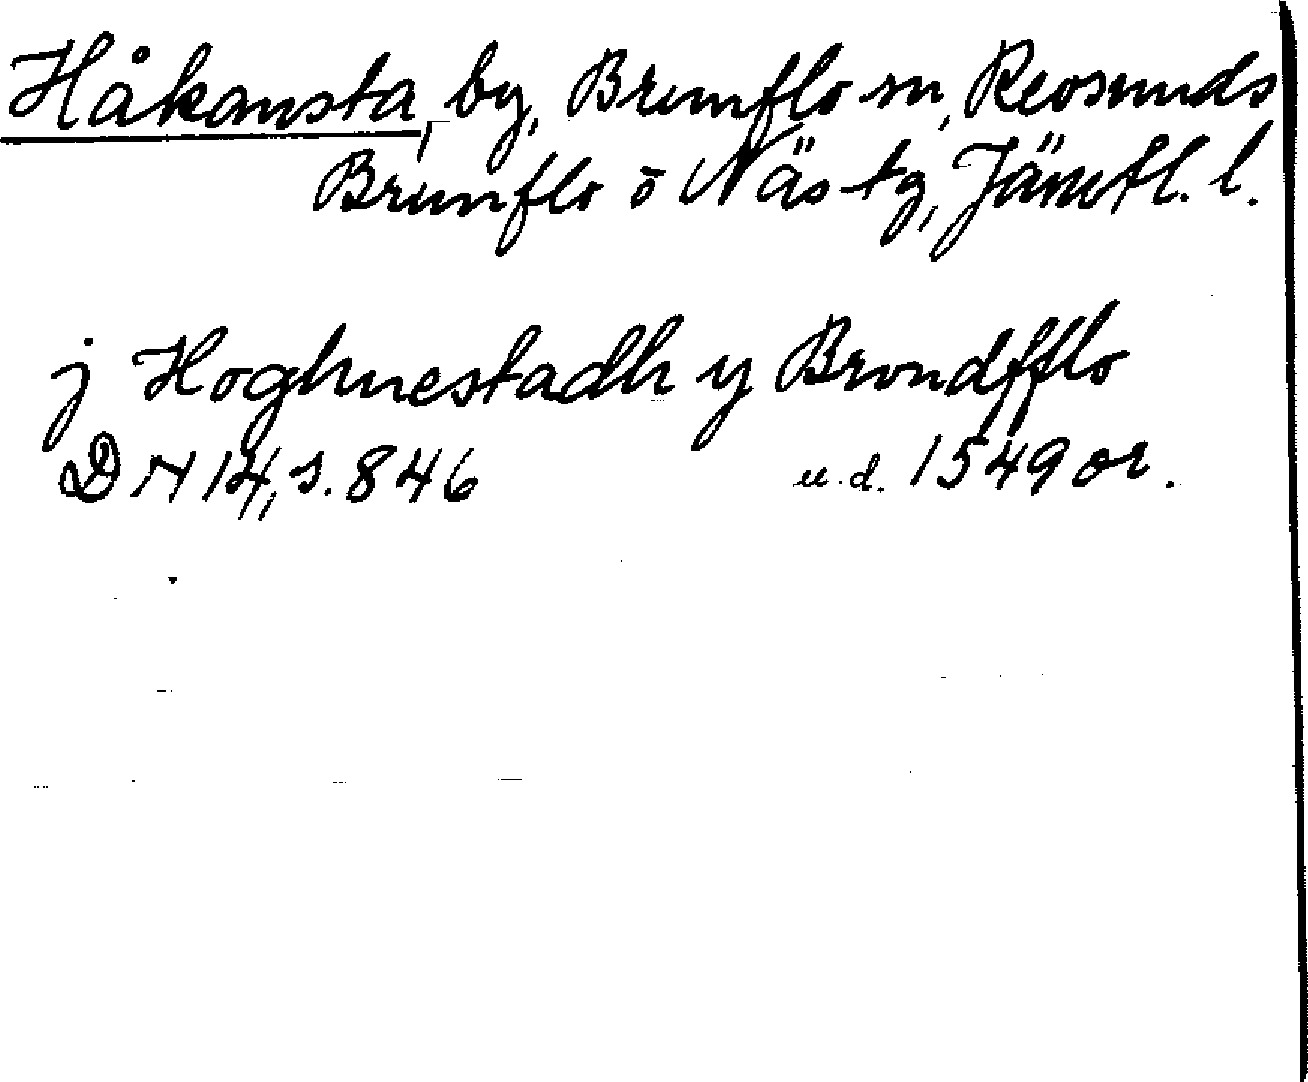 Håkansta, by, Brunflo sn, Revsunds
Brunflo o Näs tg, Jämtl. l.
j Hoghnestadh y Brvndfflo
DN 14, s. 846 u.d. 1549 or.